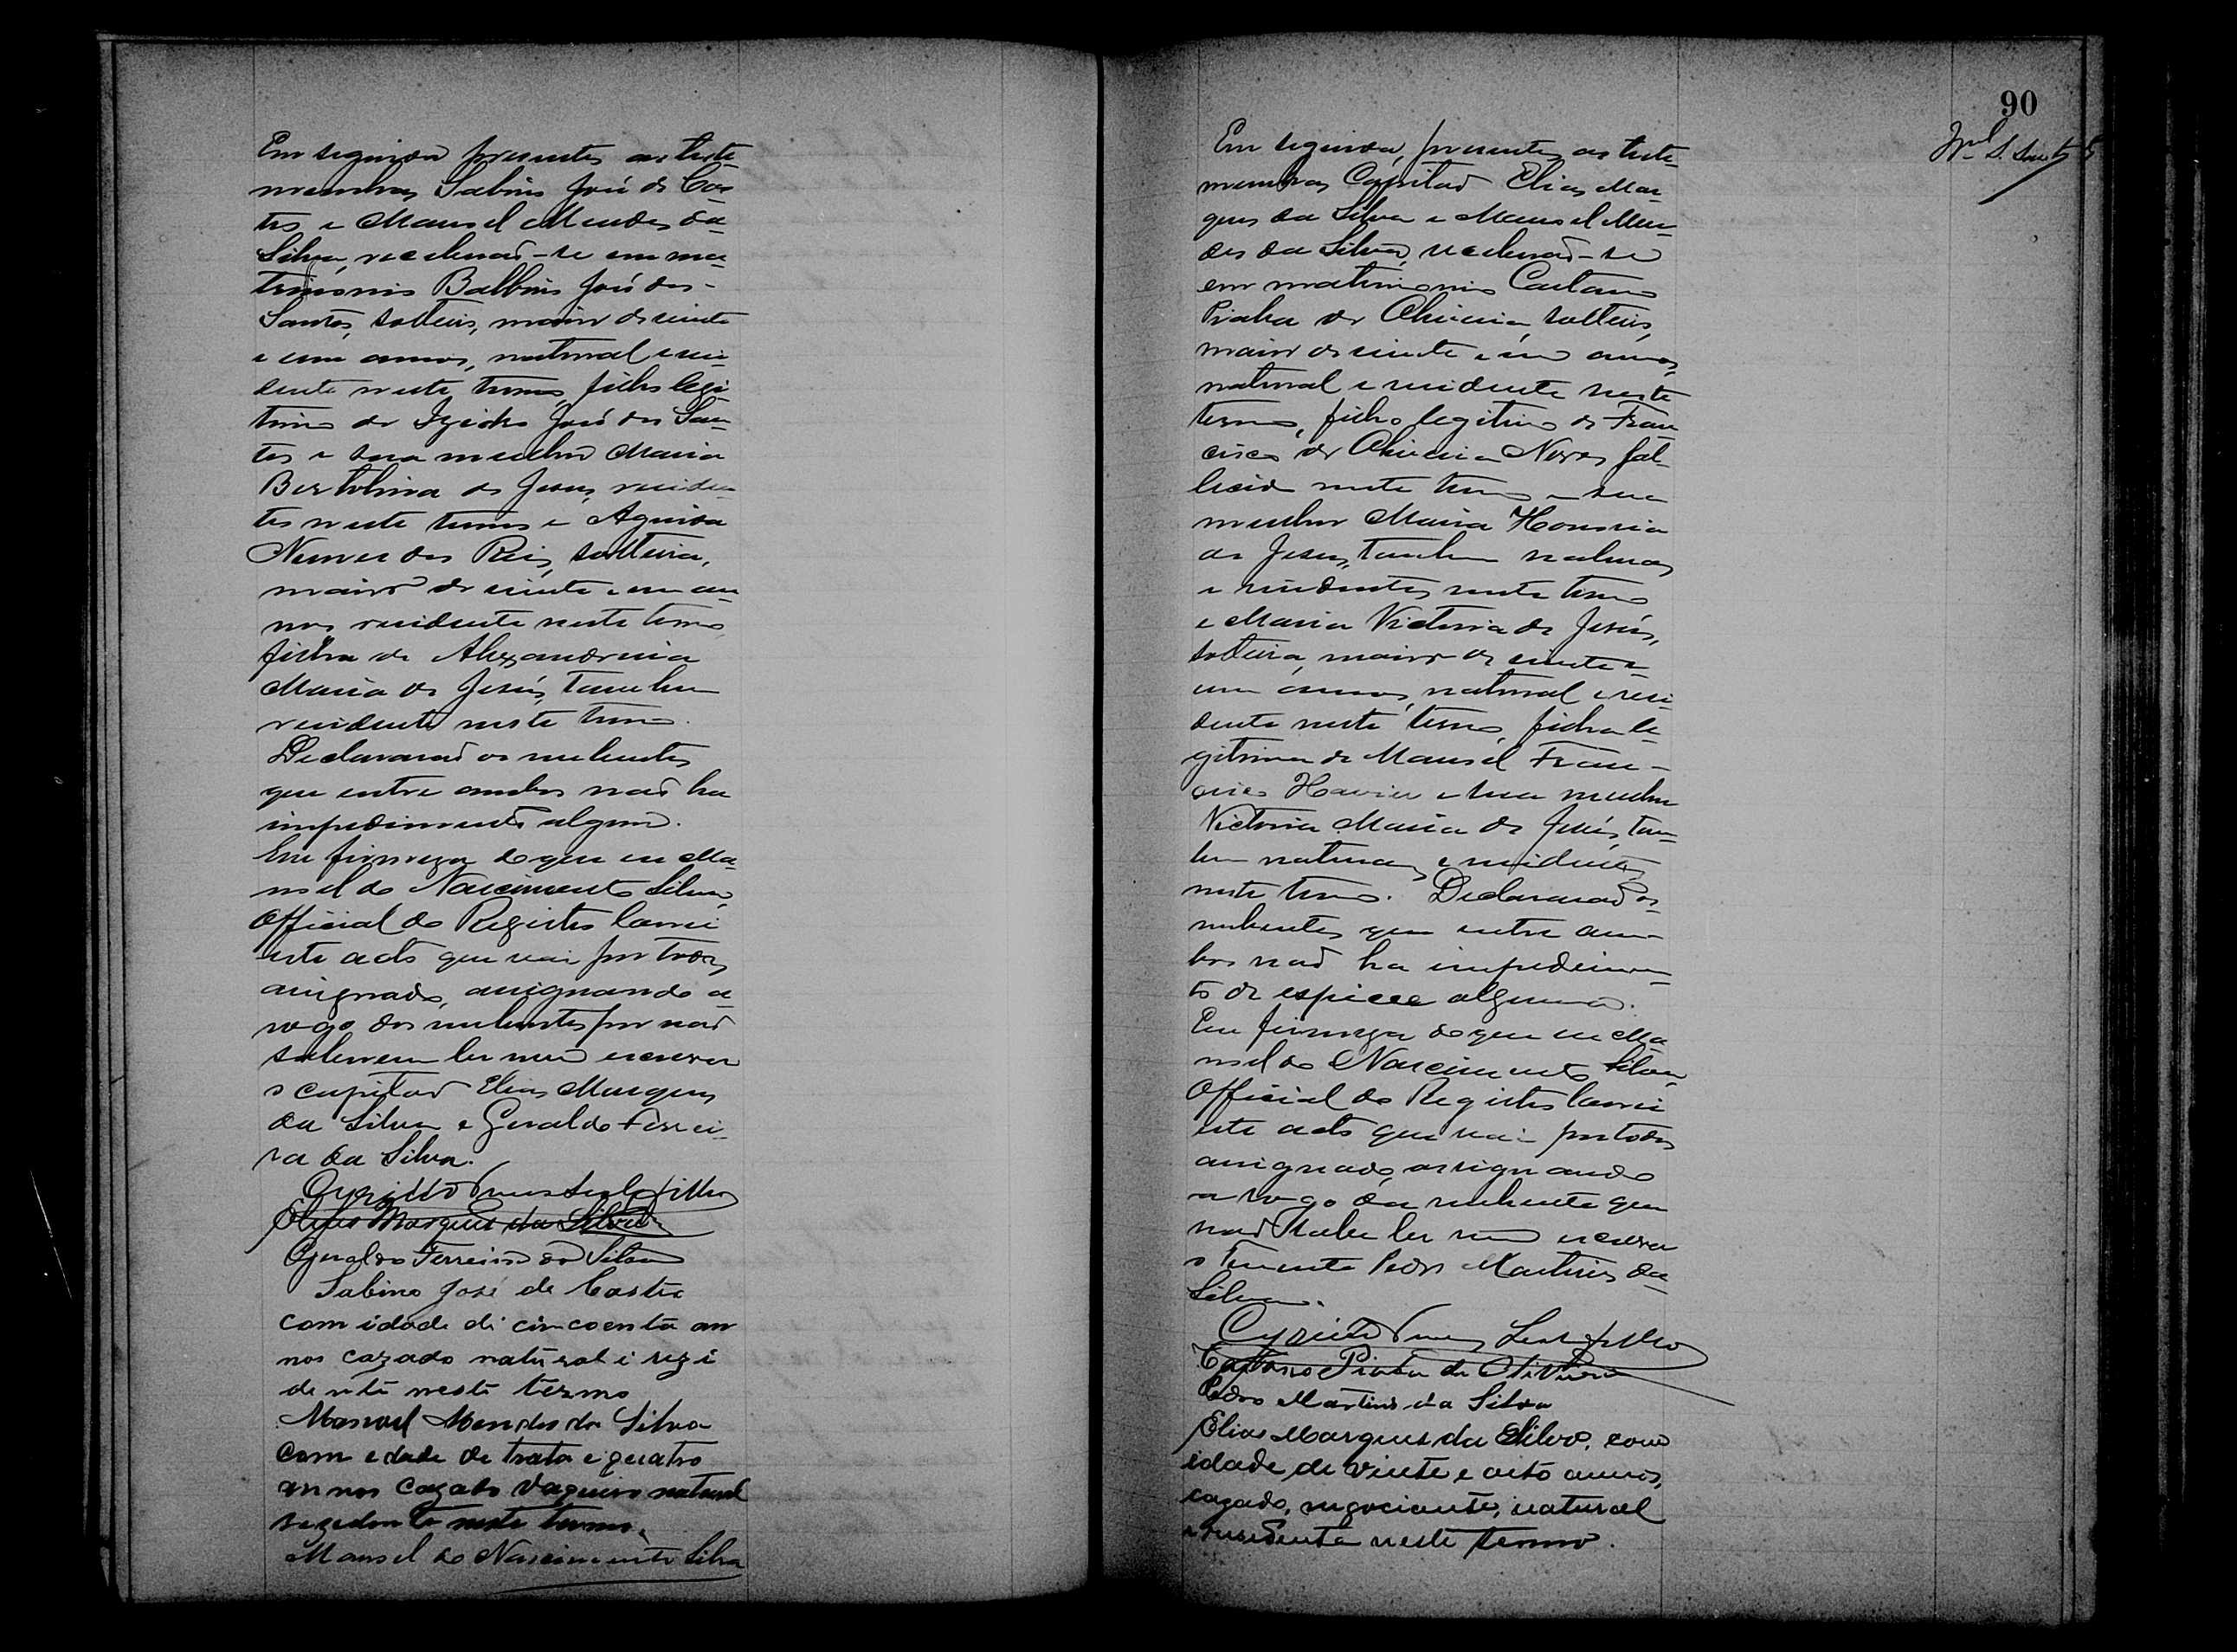 Em seguida presentes as teste-
munhas Sabino José de Cas-
tro e Manoel Mendes da
Silva, receberaõ-se em ma-
trimonio Balbino José dos
Santos, solteiro, maior de vinte
e um annos, natural e resi-
dente neste termo, filho legi-
timo de Izidro José dos San-
tos e sua mulher Maria
Bertolina de Jesus, residen-
tes neste termo e Aguida
Nunes dos Reis, solteira,
maior de vinte e um an-
nos residente neste termo,
filha de Alexandrina
Maria de Jesus, tambem
residente neste termo.
Declararaõ os nubentes
que entre ambos naõ ha
impedimento algum.
Em firmeza do que eu Ma-
noel do Nascimento Silva,
Official do Registro lavrei
este acto que vai por todos
assignado, assignando a
rogo dos nubentes por naõ
saberem ler nem escrever
o capitaõ Elias Marques
da Silva e Geraldo Ferrei-
ra da Silva.
Cyrillo Leal Filho
Elias Marques da Silva
Geraldo Ferreira da Silva
Sabino José de Castro
com idade de cincoenta an
nos cazado natural i rezi
dente neste termo
Manoel Mendes da Silva
com edade de trata e quatro
annos cazado vaqueiro natural
rezedente neste termo.
Manoel do Nascimento Silva
90
Em seguida, presentes as teste-
munhas Capitaõ Elias Mar-
ques da Silva e Manoel Men-
des da Silva, receberaõ-se
em matrimonio Caetano
Piaba de Oliveira, solteiro,
maior de vinte e um annos,
natural e residente neste
termo, filho legitimo de Fran-
cisco de Oliveira Neves fal-
lecido neste termo e sua
mulher Maria Honoria
de Jesus, tambem naturaes
e residentes neste termo
e Maria Victoria de Jesus,
solteira, maior de vinte e
um annos, natural e resi-
dente neste termo, filha le-
gitima de Manoel Fran-
cisco Xavier e sua mulher
Victoria Maria de Jesus, tam-
bem naturaes e residentes
neste termo. Declararaõ os
nubentes que entre am-
bos naõ ha impedimen-
to de especie alguma.
Em firmeza do que eu Ma-
noel do Nascimento Silva,
Official do Registro lavrei
este acto que vai por todos
assignado, assignando
a rogo da nubente que
naõ sabe ler nem escrever
o Tenente Pedro Martins da
Silva.
Cyrillo Leal Filho
Caetano Piaba de Oliveira
Pedro Martins da Silva
Elias Marques da Silva, com
idade de vinte e oito annos,
cazado, negociante, natural
e rusedente neste termo.